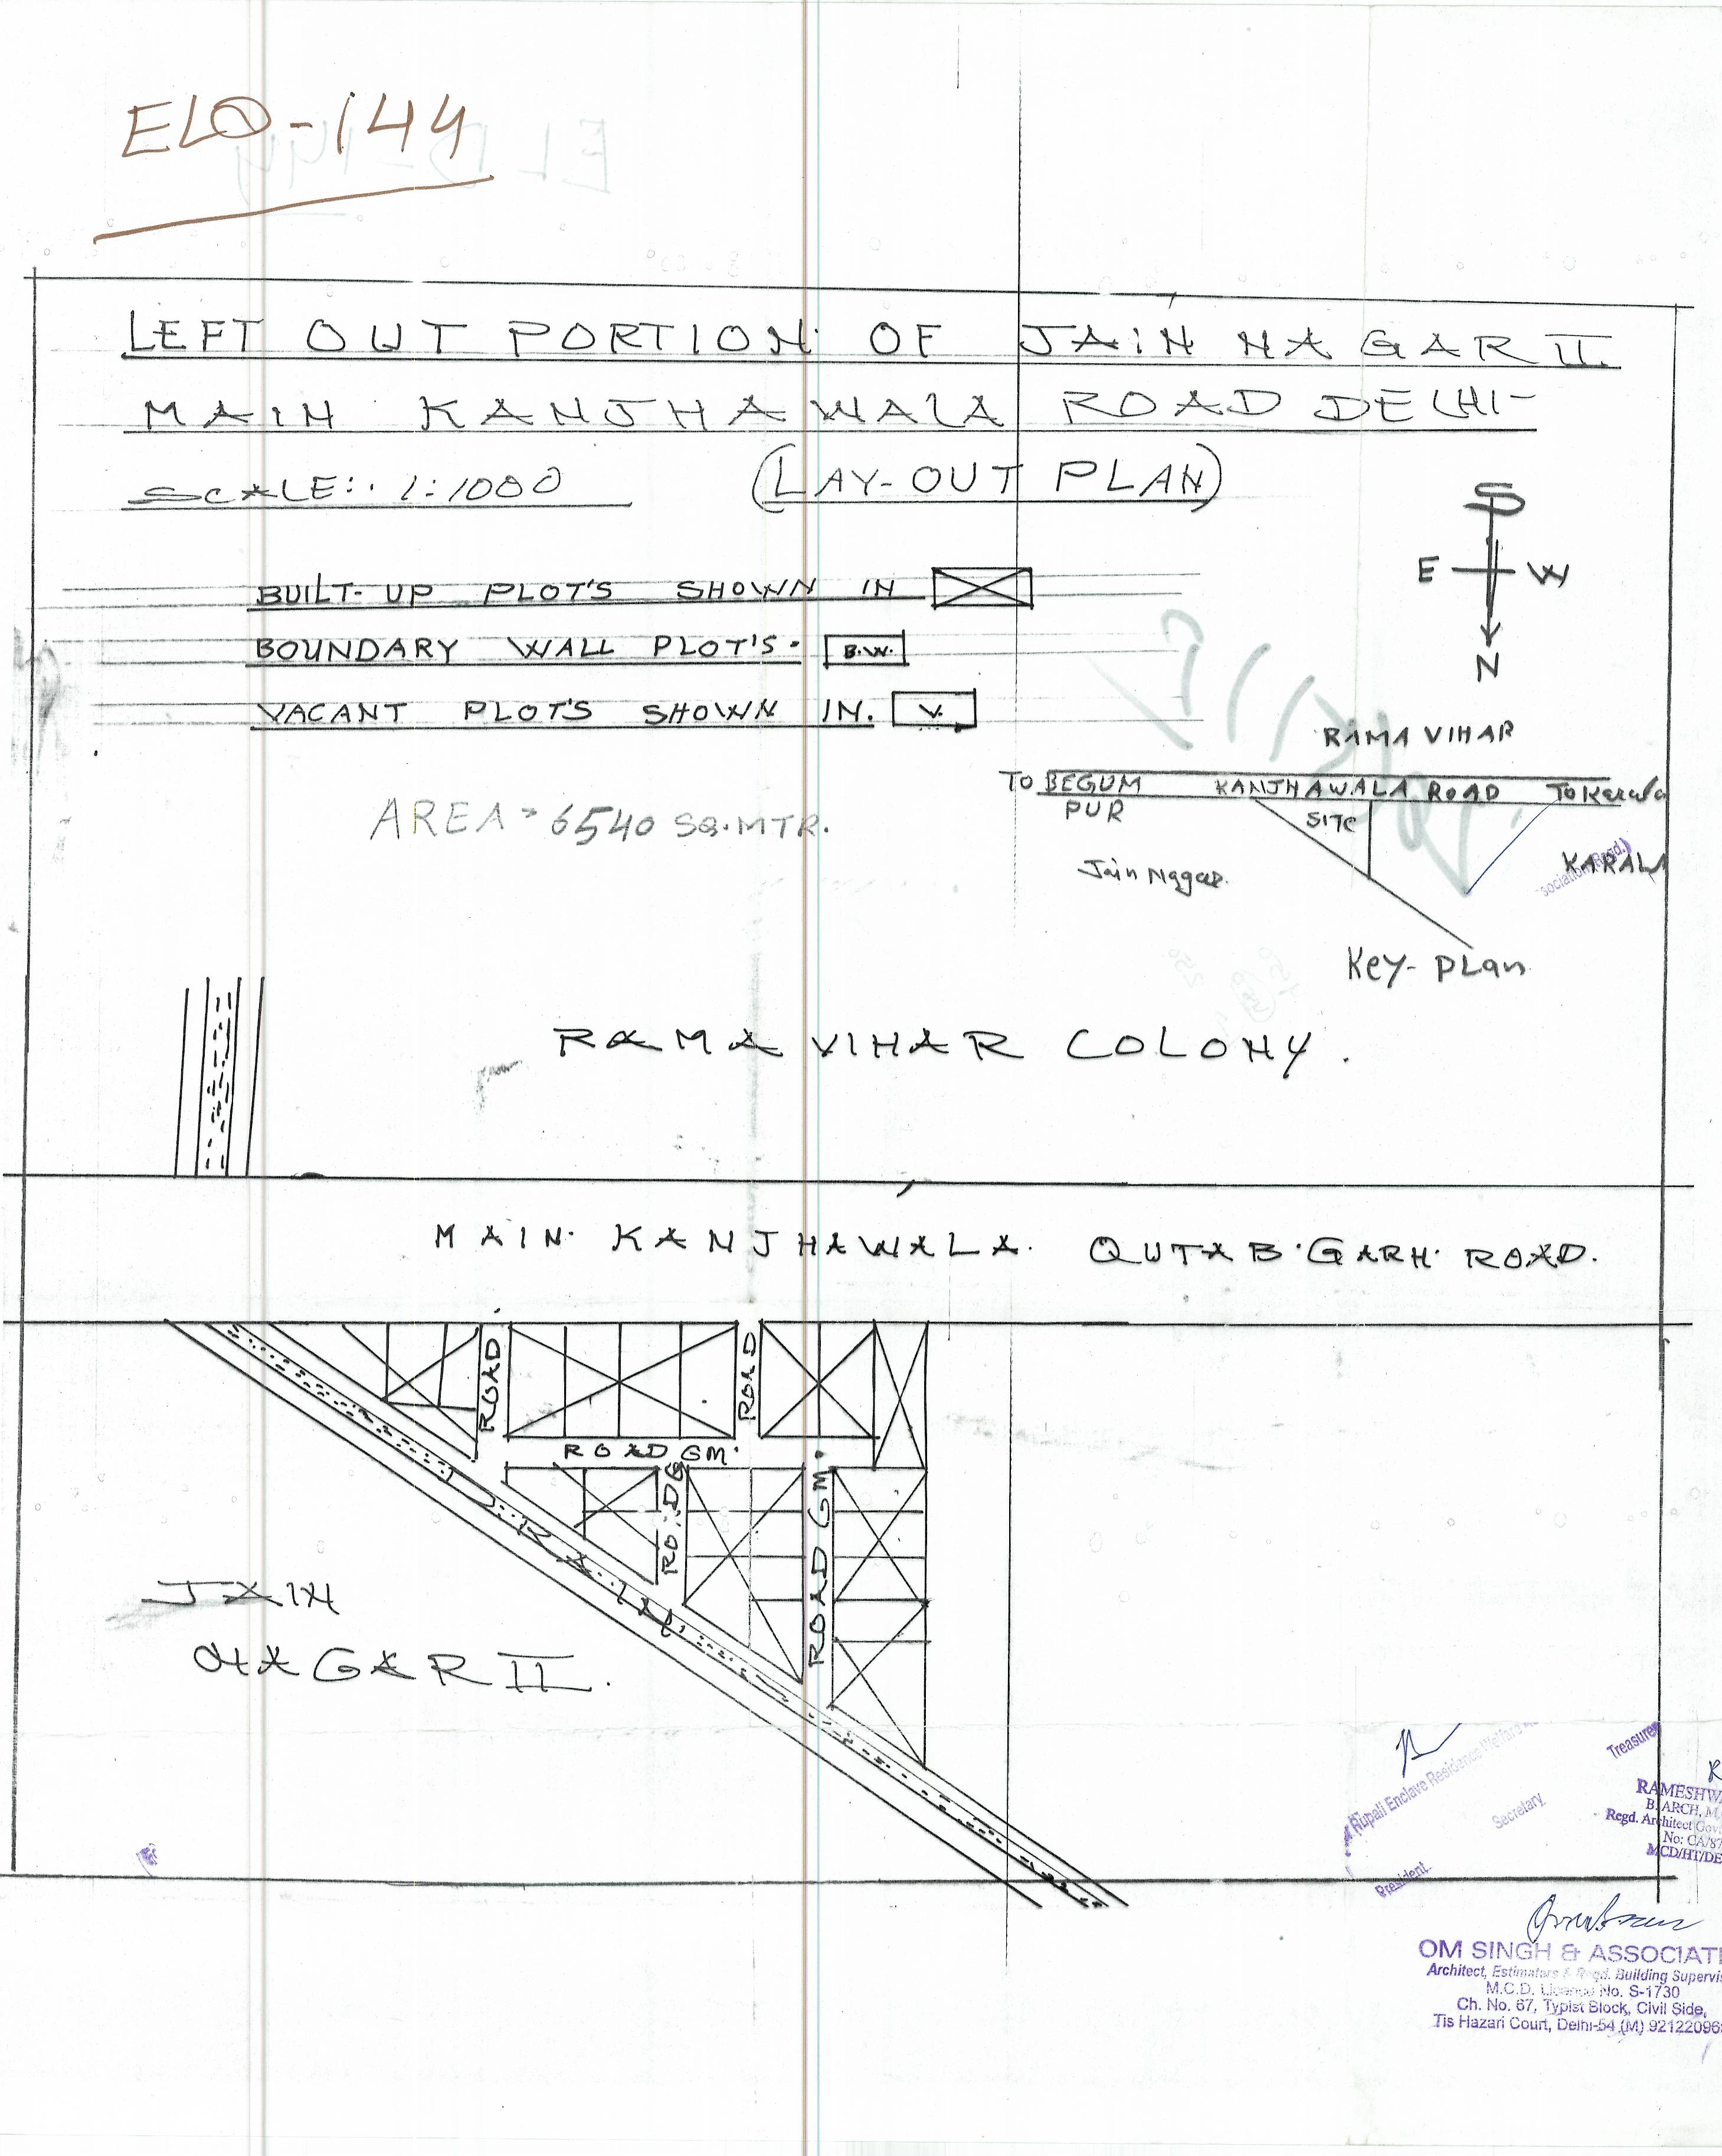 ELO-144
LEFT OUT PORTION OF JAIN NAGAR II
MAIN KANJHAWALA ROAD DELHI-
SCALE: 1:1000 (LAY-OUT PLAN)
S
E W
N
BUILT-UP PLOT'S SHOWN IN
BOUNDARY WALL PLOT'S. B.W.
VACANT PLOT'S SHOWN IN. V.
AREA = 6540 SQ.MTR.
RAMA VIHAR
TO BEGUM PUR
KANJHAWALA ROAD
To Karala
SITE
KARALA
Jain Nagar
Key-Plan
RAMA VIHAR COLONY.
MAIN KANJHAWALA. QUTAB GARH ROAD.
ROAD
ROAD
ROAD 6M.
ROAD 6
ROAD 6M.
DRAIN
JAIN
NAGAR II.
Rupali Enclave Residence Welfare
Secretary
President
Treasurer
RAMESHWA
B. ARCH, M
Regd. Architect Gov
No: CA/87
MCD/HT/DE
OM SINGH & ASSOCIATE
Architect, Estimators & Regd. Building Supervis
M.C.D. Licence No. S-1730
Ch. No. 67, Typist Block, Civil Side,
Tis Hazari Court, Delhi-54 (M) 92122096